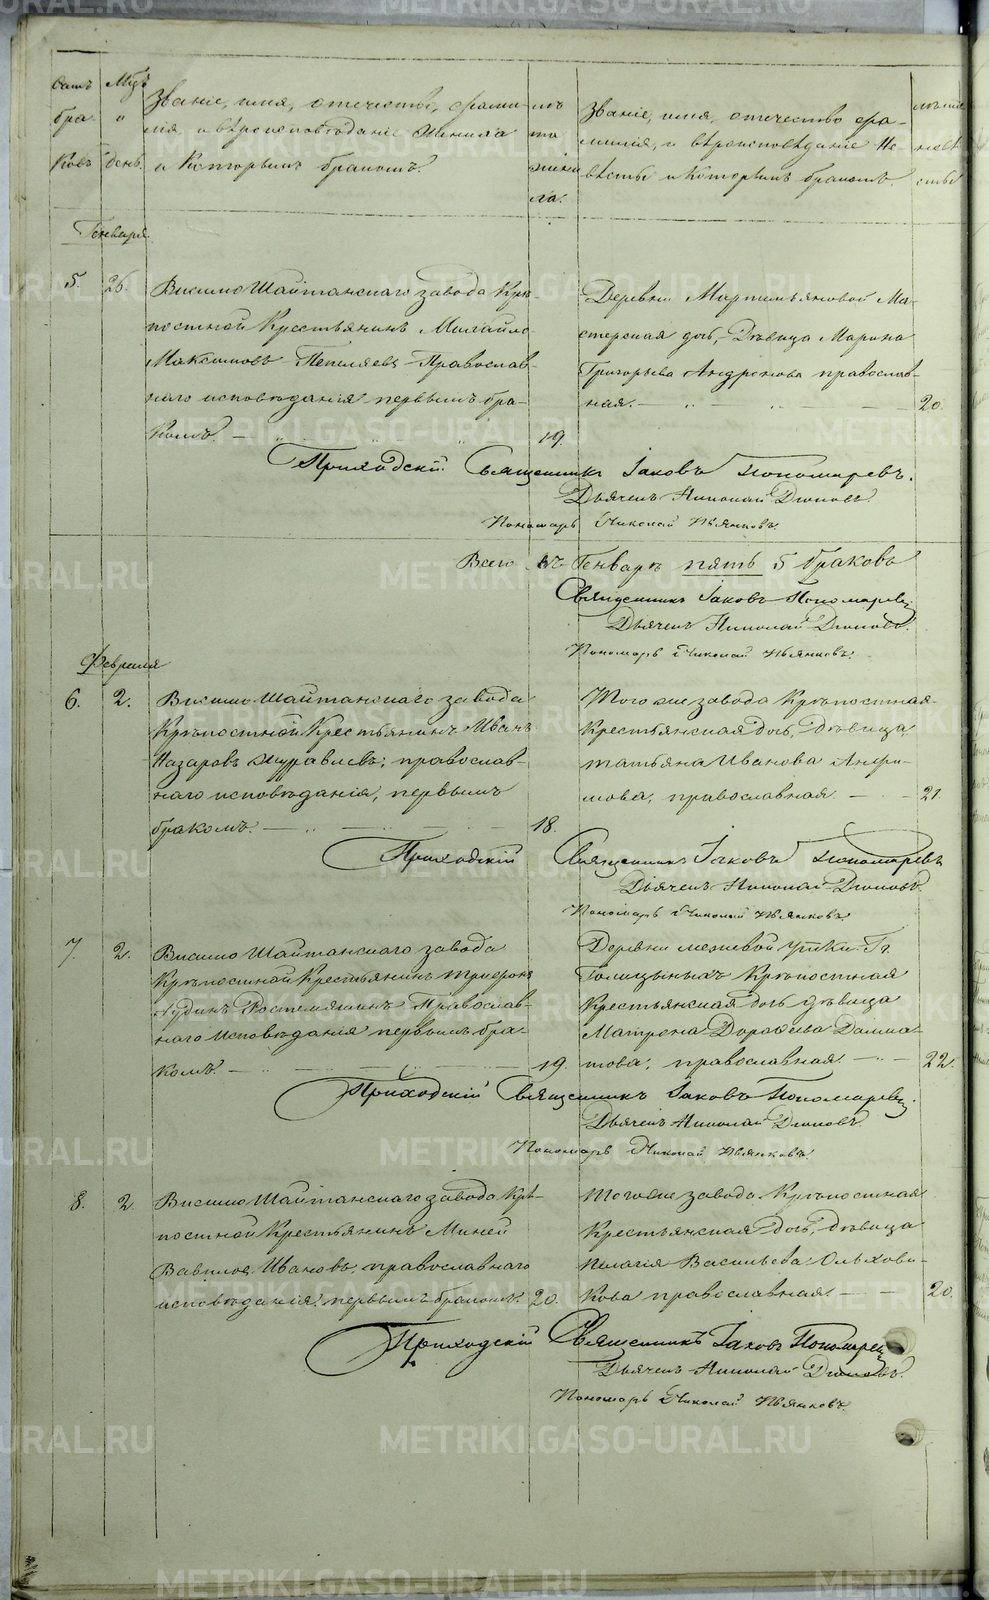 METRIKI.GASO-URAL.RU
Счетъ браковъ
Мѣсяцъ и день.
Званіе, имя, отечество, фами-
лія, и вѣроисповѣданіе жениха
и которымъ бракомъ.
лѣта жениха.
Званіе, имя, отечество фа-
милія, и вѣроисповѣданіе не-
вѣсты и которымъ бракомъ.
Генваря
5. 26.
Висимо Шайтанскаго завода Крѣ-
постной Крестьянинъ Михайло
Максимовъ Пепеляевъ Православ-
наго исповѣданія первымъ бра-
комъ. 19.
Деревни Мартемьяновой Ма-
стерская дочь, Дѣвица Марина
Григорьева Андронова православ-
ная. 20.
Приходскій Священникъ Іаковъ Пономаревъ.
Дьячекъ Николай
Пономарь Николай
Всего въ Генварѣ пять 5 браковъ
Священникъ Іаковъ Пономаревъ
Дьячекъ Николай
Пономарь Николай
Февраля
6. 2.
Висимо Шайтанскаго завода
Крѣпостной Крестьянинъ Иванъ
Назаровъ Журавлевъ, православ-
наго исповѣданія, первымъ
бракомъ. 18.
Того же завода Крѣпостная
Крестьянская дочь, Дѣвица
Татьяна Иванова
православная 21.
Приходскій Священникъ Іаковъ Пономаревъ
Дьячекъ Николай
Пономарь Николай
7. 2.
Висимо Шайтанскаго завода
Крѣпостной Крестьянинъ Трифонъ
Православ-
наго исповѣданія первымъ бра-
комъ. 19.
Деревни межевой Утки Гг.
Голицыныхъ Крѣпостная
Крестьянская дочь дѣвица
Матрона Дорофеева Долма-
това, православная 22.
Приходскій Священникъ Іаковъ Пономаревъ.
Дьячекъ Николай
Пономарь Николай
8. 2
Висимо Шайтанскаго завода Крѣ-
постной Крестьянинъ Миней
Вавиловъ Ивановъ, православнаго
исповѣданія первымъ бракомъ. 20.
Того же завода Крѣпостная
Крестьянская дочь, дѣвица
Пелагія Васильева Ольхови-
кова православная 20.
Приходскій Священникъ Іаковъ Пономаревъ
Дьячекъ Николай
Пономарь Николай